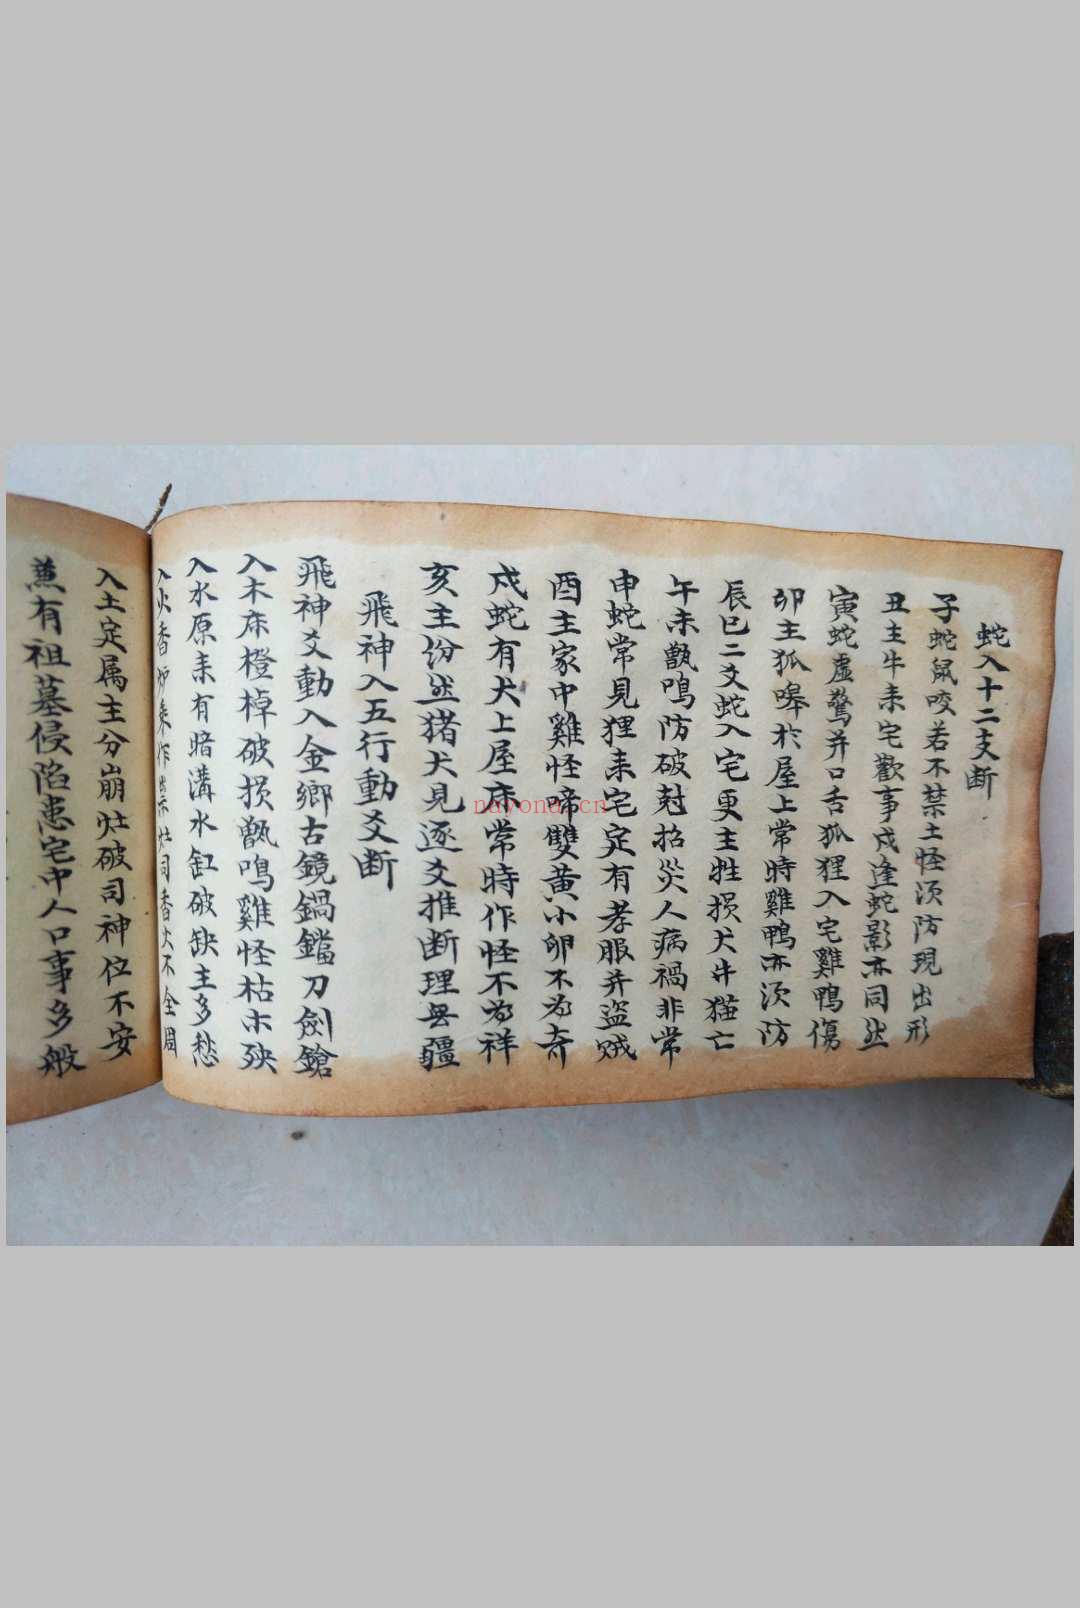 蛇入十二支断
子蛇鼠咬若不禁土怪须防現出形
丑主牛来宅歡事戍逢蛇影亦同然
寅蛇虚驚并口舌狐狸入宅雞鴨傷
卯主狐嗥於屋上常時雞鴨亦须防
辰巳二爻蛇入宅更主牲损犬牛猫亡
午未甑鳴防破封招災人病禍非常
申蛇常見狸来宅定有孝服并盗贼
酉主家中雞怪啼雙黄小卵不为奇
戍蛇有犬上屋床常時作怪不为祥
亥主份然猪犬見逐爻推断理無疆
飛神入五行動爻断
飛神爻動入金鄉古鏡鍋鐺刀劍鎗
入木床橙棹破损甑鳴雞怪枯木殃
入水原来有暗溝水缸破缺主多愁
入火香炉来作祟灶同香火不全周
入土定属主分崩灶破司神位不安
兼有祖墓侵陷患宅中人口事多般
nayona.cn